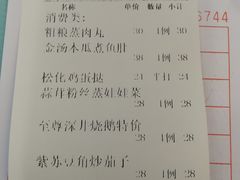 名称 单价 数量 小计
消费类:
粗粮蒸肉丸
30 1例 30
金汤木瓜煮鱼肚
38 1例 38
松化鸡蛋挞 24 1打 24
蒜茸粉丝蒸娃娃菜
28 1例 28
至尊深井烧鹅特价
28 1例 28
紫苏豆角炒茄子
28 1例 28
6744